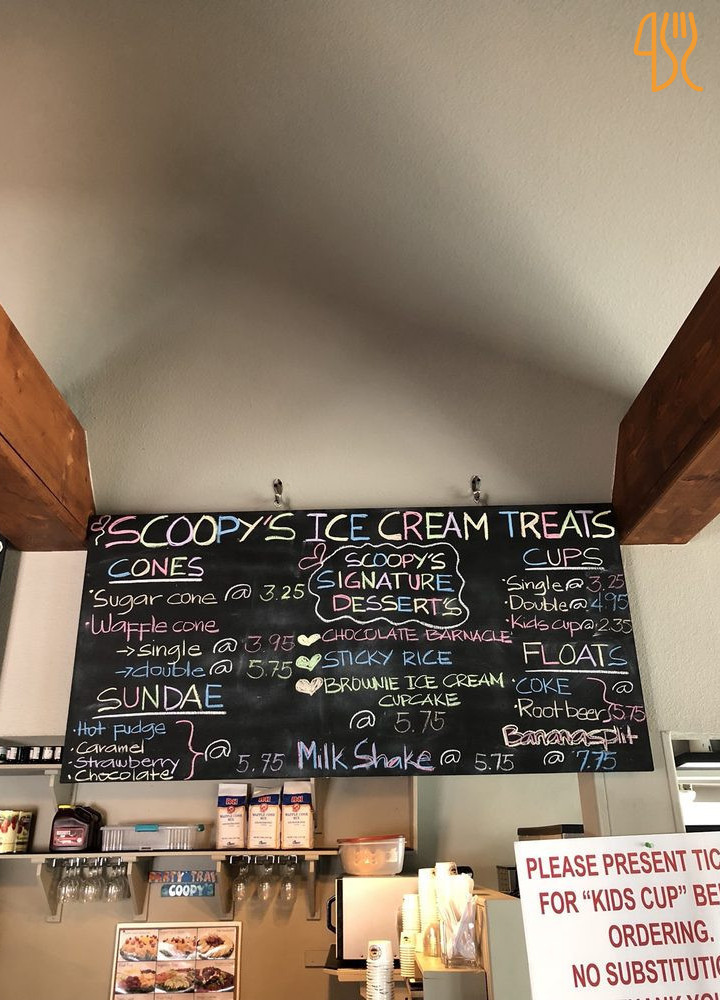 SCOOPY'S ICE CREAM TREATS
CONES
Sugar cone @ 3.25
Waffle cone
→ single @ 3.95
→ double @ 5.75
SUNDAE
Hot fudge
Caramel
Strawberry
Chocolate
@ 5.75
SCOOPY'S
SIGNATURE
DESSERT'S
CHOCOLATE BARNACLE
STICKY RICE
BROWNIE ICE CREAM
CUPCAKE
@ 5.75
Milk Shake @ 5.75
CUPS
Single @ 3.25
Double @ 4.95
Kids cup @ 2.35
FLOATS
COKE
Root beer
@ 5.75
Bananasplit
@ 7.75
PARTY TRAY
SCOOPY'S
WAFFLE CONE
MIX
WAFFLE CONE
MIX
WAFFLE CONE
MIX
PLEASE PRESENT TIC
FOR "KIDS CUP" BE
ORDERING.
NO SUBSTITUTIO